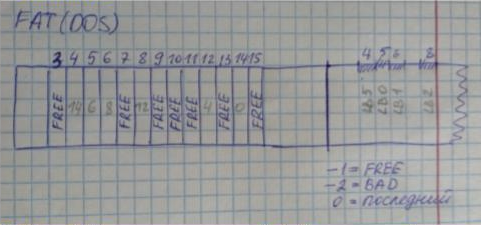 FAT (DOS)
3 4 5 6 7 8 9 10 11 12 13 14 15 4 5 6 8
FREE 14 6 8 FREE 12 FREE FREE FREE 4 FREE 0 FREE LB5 LB0 LB1 LB2
-1 = FREE
-2 = BAD
0 = последний